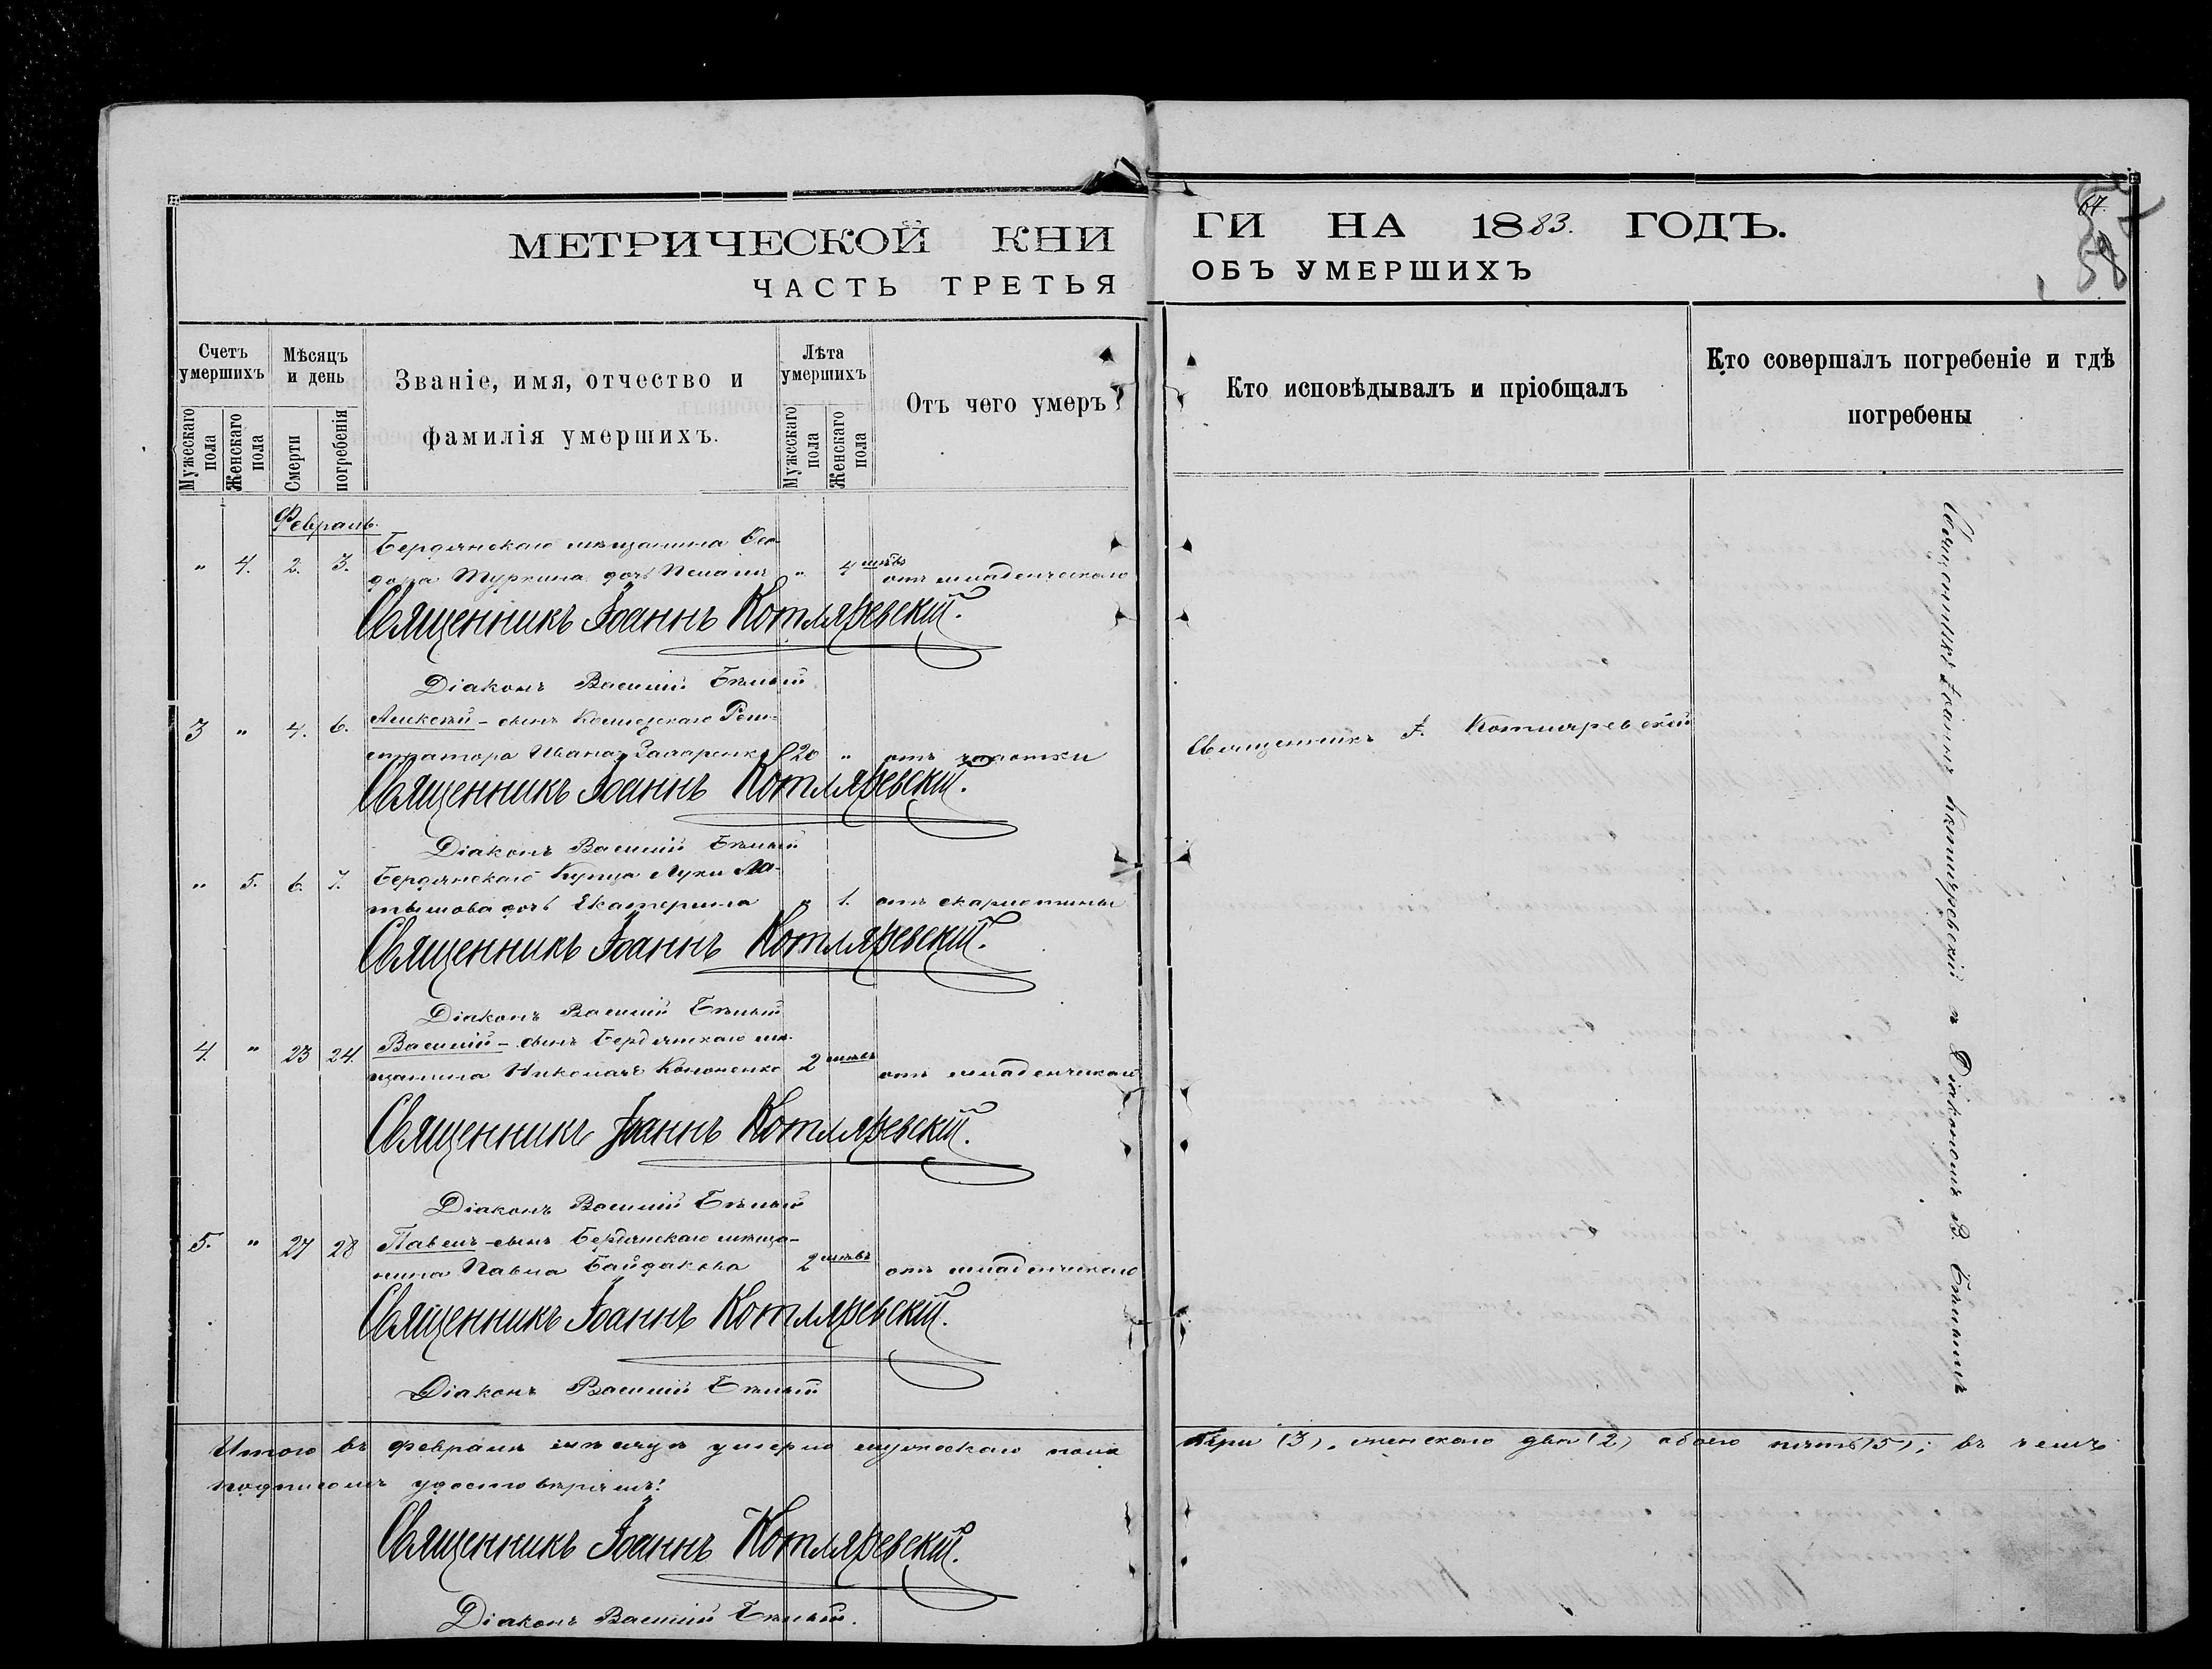 МЕТРИЧЕСКОЙ КНИГИ НА 1883. ГОДЪ.
ЧАСТЬ ТРЕТЬЯ ОБЪ УМЕРШИХЪ
67.
58
Счетъ умершихъ
Мужескаго пола
Женскаго пола
Мѣсяцъ и день
Смерти
погребенія
Званіе, имя, отчество и
фамилія умершихъ.
Лѣта умершихъ
Мужескаго пола
Женскаго пола
Отъ чего умеръ
Кто исповѣдывалъ и пріобщалъ
Кто совершалъ погребеніе и гдѣ
погребены
Февраль.
Бердянскаго мѣщанина Ѳео-
" 4. 2. 3. дора Туркина дочь " 4 отъ младенческаго
Священникъ Іоаннъ Котляревскій.
Діаконъ Василій Бѣлый
3 " 4. 6. Алексѣй - сынъ Коллежскаго Реги-
стратора Ивана Захаренко 20 " отъ чахотки Священникъ І. Котляревскій
Священникъ Іоаннъ Котляревскій.
Діаконъ Василій Бѣлый
" 5. 6. 7. Бердянскаго Купца Луки Ла-
тышова дочь Екатерина " 1. отъ скарлотины
Священникъ Іоаннъ Котляревскій.
Діаконъ Василій Бѣлый
4. " 23 24. Василій - сынъ Бердянскаго мѣ-
щанина Николая Кононенко 2 отъ младенческаго
Священникъ Іоаннъ Котляревскій.
Діаконъ Василій Бѣлый
5. " 27 28 Павелъ - сынъ Бердянскаго мѣща-
нина Павла Байдакова 2 отъ младенческаго
Священникъ Іоаннъ Котляревскій.
Діаконъ Василій Бѣлый
Священникъ Іоаннъ Котляревскій съ Діакономъ В. Бѣлымъ
Итого въ февралѣ мѣсяцѣ умерло мужескаго пола три (3), женскаго двѣ (2) обоего пять (5); въ чемъ
подписомъ удостовѣряемъ:
Священникъ Іоаннъ Котляревскій.
Діаконъ Василій Бѣлый.